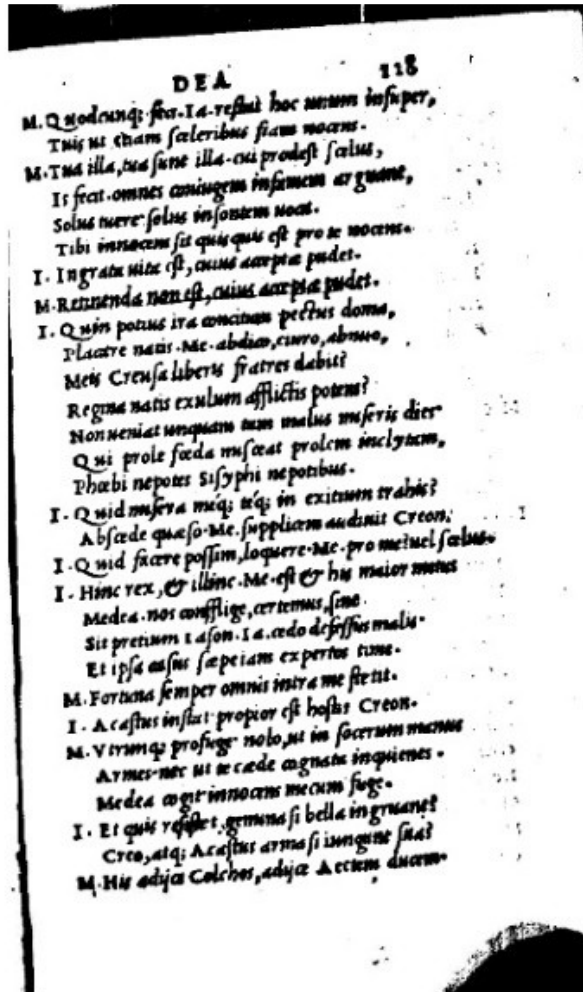 DEA 118
M. Quodcunq; feci. Ia. restat hoc unum insuper,
Tuis ut etiam sceleribus fiam nocens.
M. Tua illa, tua sunt illa. cui prodest scelus,
Is fecit. omnes coniugem infamem arguant,
Solus tuere. solus insontem uoca.
Tibi innocens sit quisquis est pro te nocens.
I. Ingrata uita est, cuius acceptae pudet.
M. Retinenda non est, cuius acceptae pudet.
I. Quin potius ira concitum pectus doma,
Placare natis. Me. abdico, eiuro, abnuo,
Meis Creusa liberis fratres dabit?
Regina natis exulum afflictis potens?
Non ueniat unquam tam malus miseris dies
Qui prole foeda misceat prolem inclytam,
Phoebi nepotes Sisyphi nepotibus.
I. Quid misera meq; teq; in exitium trahis?
Abscede quaeso. Me. supplicem audiuit Creon.
I. Quid facere possim, loquere. Me. pro me? uel scelus.
I. Hinc rex, & illinc. Me. est & his maior metus
Medea. nos confflige, certemus, sine
Sit pretium Iason. Ia. cedo defessus malis.
Et ipsa casus saepe iam expertos time.
M. Fortuna semper omnis intra me stetit.
I. Acastus instat. propior est hostis Creon.
M. Vtrunq; profuge. nolo, ut in socerum manus
Armes. nec ut te caede cognata inquines.
Medea cogit. innocens mecum fuge.
I. Et quis resistet, gemina si bella ingruant?
Creo, atq; Acastus arma si iungant sua?
M. His adijce Colchos, adijce Aeetem ducem.